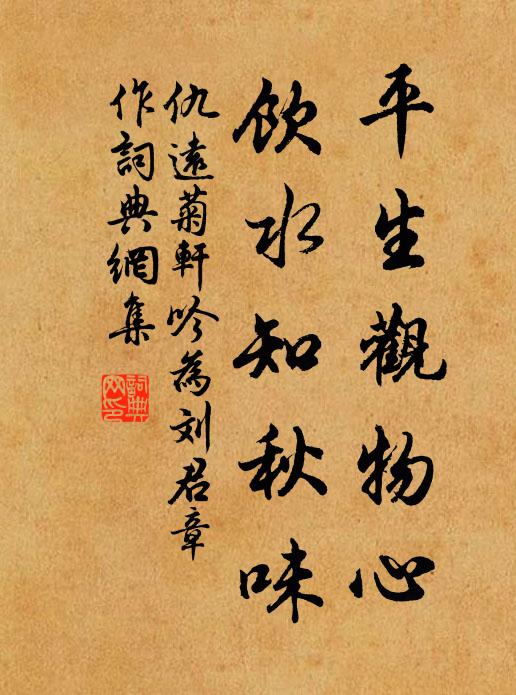 平生觀物心
飲水知秋味
仇遠菊軒吟為刘君章
作詞典網集
詞典網印